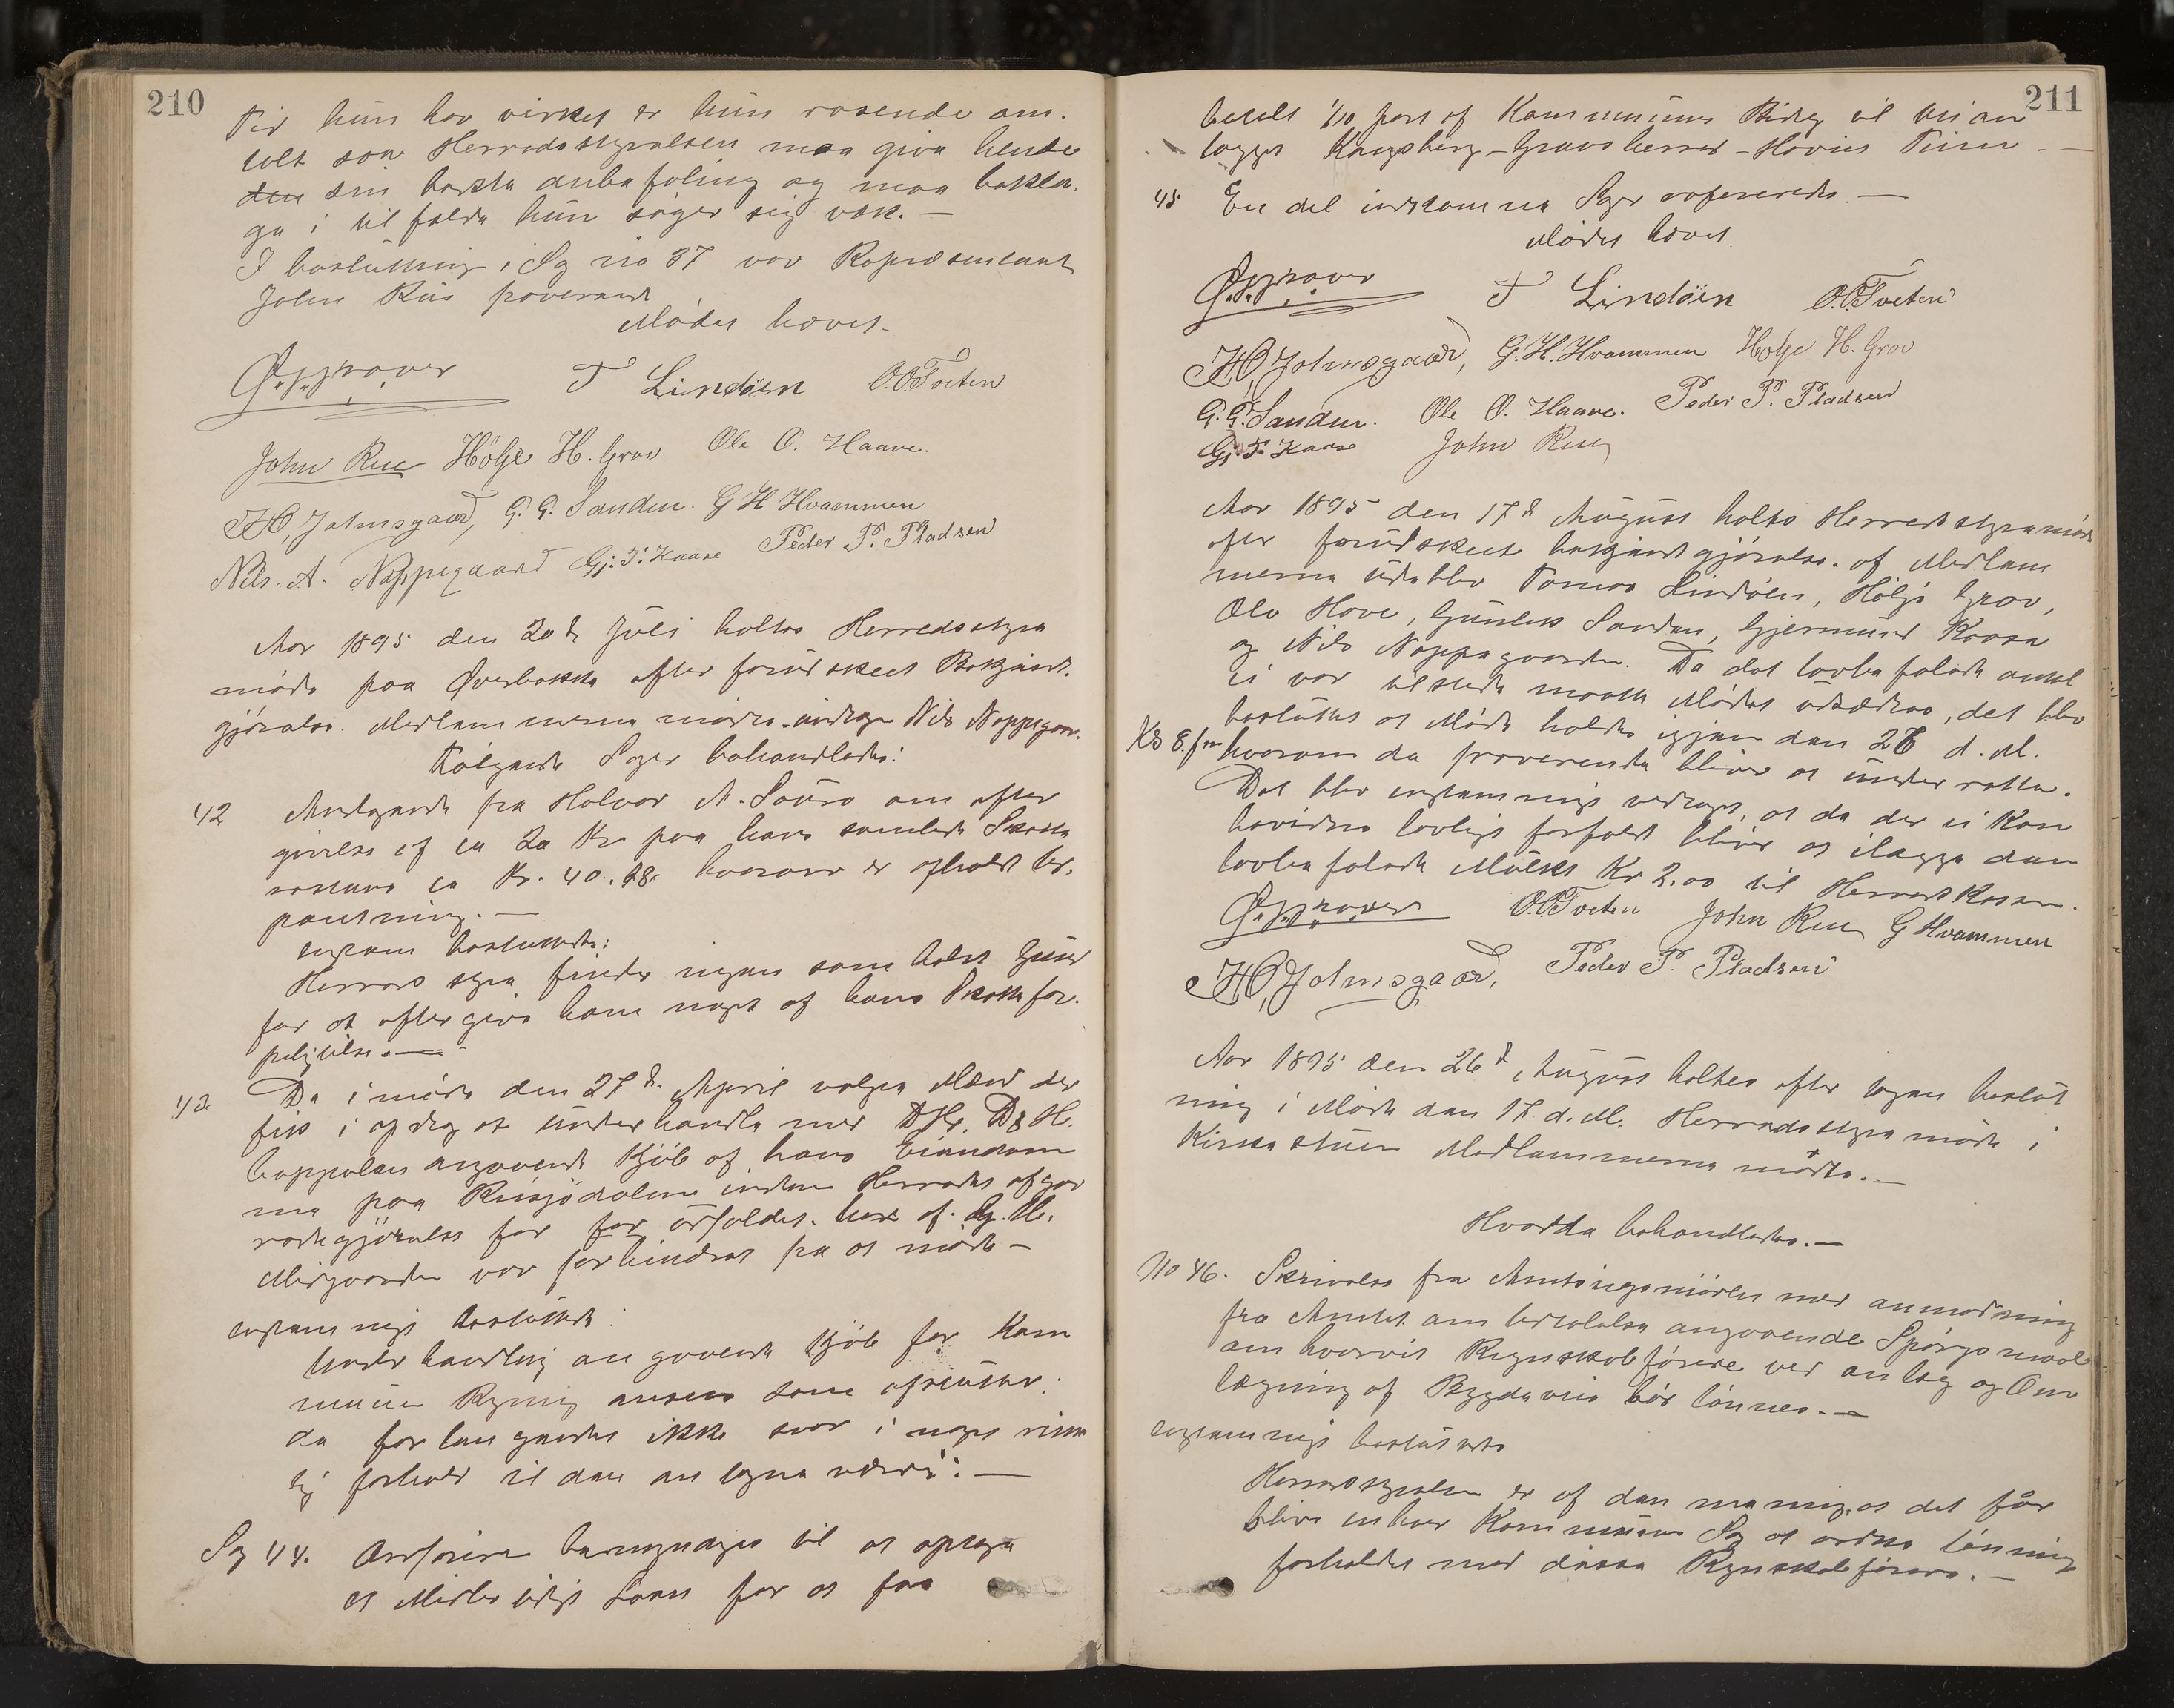 210
Tid hun har virket er hun rosende om.
talt saa Herredsstyrelsen maa give hende
den sin beste anbefaling og maa bekla.
ge i tilfælde hun søger sig væk. —
I beslutning i Sag no 37 var Repræsentant
John Rue fraverende
Mødet hævet.
T Lindöen O.O.Tveten
John Rue Hölje H. Grov Ole O. Haave.
H. Jolmsgaard, G. G. Sanden. G H Hvammen
Nils. A. Nöppegaard Gj. T. Kaase Peder P. Pladsen
Aar 1895 den 20de Juli holtes Herredsstyre
møde paa Øverbekke efter forudskeet Bekjendt.
gjørelse. Medlemmerne møtte undtagen Nils Noppegaar.
Følgende Sager behandledes:
42 Andragende fra Halvor A. om efter
givelse af ca 20 Kr paa hans samlede Skatte
restanse ca Kr. 40.48. hvorom er afholdt Ud.
pantning. —
enstem besluttedes:
Herreds styre finder ingen som helst Grund
for at eftergive ham noget af hans Skattefor.
pligtelse. —
43 Da i møde den 27de April valgte Mænd der
fik i opdrag at underhandle med Dr. H.
Cappelen angaaende Kjøb af hans Eiendom
me paa Rusjödalene inden Herredet afgav
redegjörelse for for
Midgaarden var forhindret fra at møde —
enstemmigt besluttet:
Underhandling angaaende Kjöb for Kom
munen Regning ansees som afsluttet,
da forlangendet ikke svar i noget rime
lig forhold til den antagne værdi: —
Sag 44. Ordføreren bemyndiges til at optage
et Midlertidigt Laan for at faa
211
betalt 1/10 part af Kommunens Bidrag til veian
lægget Kongsberg – Gransherred – Hovin Tinn —
45 En del indkomne Sager refereredes. —
Mødet hævet.
T Lindöen O.O.Tveten
H. Jolmsgaard, G. H. Hvammen Holje H. Grov
G. G. Sanden. Ole O. Haave. Peder P. Pladsen
Gj. T. Kaase John Rue
Aar 1895 den 17de August holtes Herredsstyremøde
efter forudskeet bekjendtgjørelse. af Medlem
merne udeblev Tomas Lindöen, Hölje Grov,
Ole Hove, Gunleik Sanden, Gjermund Kaasa
og Nils Noppegaarden. Da det lovbefalede antal
ei var tilstede maatte Mødet udsættes, det blev
besluttet at Møde holdes igjen den 26 d. M.
Kl 8 fm hvorom de fraverende bliver at underrette.
Det blev enstemmigt vedtaget, at da der ei kan
bevidnes lovligt forfald bliver at ilægge den
lovbefalede Mulkt Kr 2.00 til Herredskassen.
O.O.Tveten John Rue G Hvammen
H. Jolmsgaard, Peder P. Pladsen
Aar 1895 den 26de August holtes efter tagen beslut
ning i Møde den 17. d. M. Herredsstyremøde i
Kirkestuen Medlemmerne mødte. —
Hvorda behandledes. —
No 46. Skrivelse fra Amtsingeniøren med anmodning
fra Amtet om udtalelse angaaende Spørgsmaal
om hvorvidt Regnskabsførere ved anlæg og Om
lægning af Bygdeveie bør lønnes. —
enstemmigt besluttedes
Herredsstyrelsen er af den mening, at det får
blive enhver Kommunes Sag at ordne lønnings
forholdet med disse Regnskabsførere. —